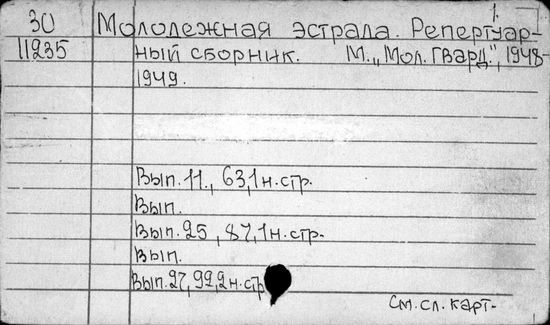 1.
30 Молодежная эстрада. Репертуар-
11235 ный сборник. М. „Мол. гвард.", 1948-
1949.
Вып. 11., 63,1 н. стр.
Вып.
Вып. 25, 87,1 н. стр.
Вып.
Вып. 27, 92,2 н. стр
См. сл. карт-